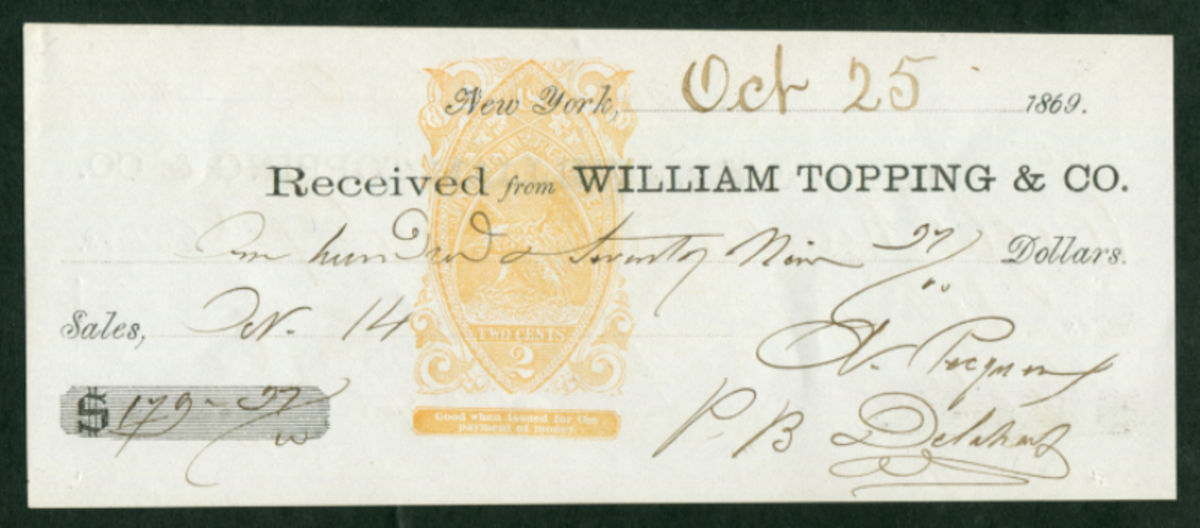 New York, Oct 25 1869.
Received from WILLIAM TOPPING & CO.
One hundred & Seventy Nine 37/00 Dollars.
Sales, Oct. 14
$179-37/00
P. B
U.S. INTERNAL REVENUE
TWO CENTS
2
Good when issued for the
payment of money.